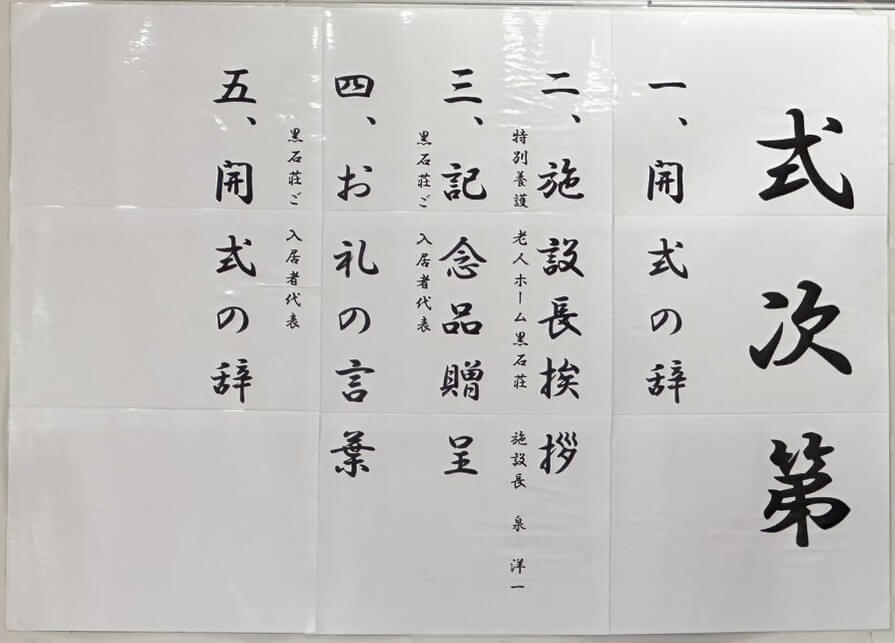 式次第
一、開式の辞
二、施設長挨拶
特別養護 老人ホーム黒石荘 施設長 泉 洋一
三、記念品贈呈
黒石荘ご 入居者代表
四、お礼の言葉
黒石荘ご 入居者代表
五、開式の辞